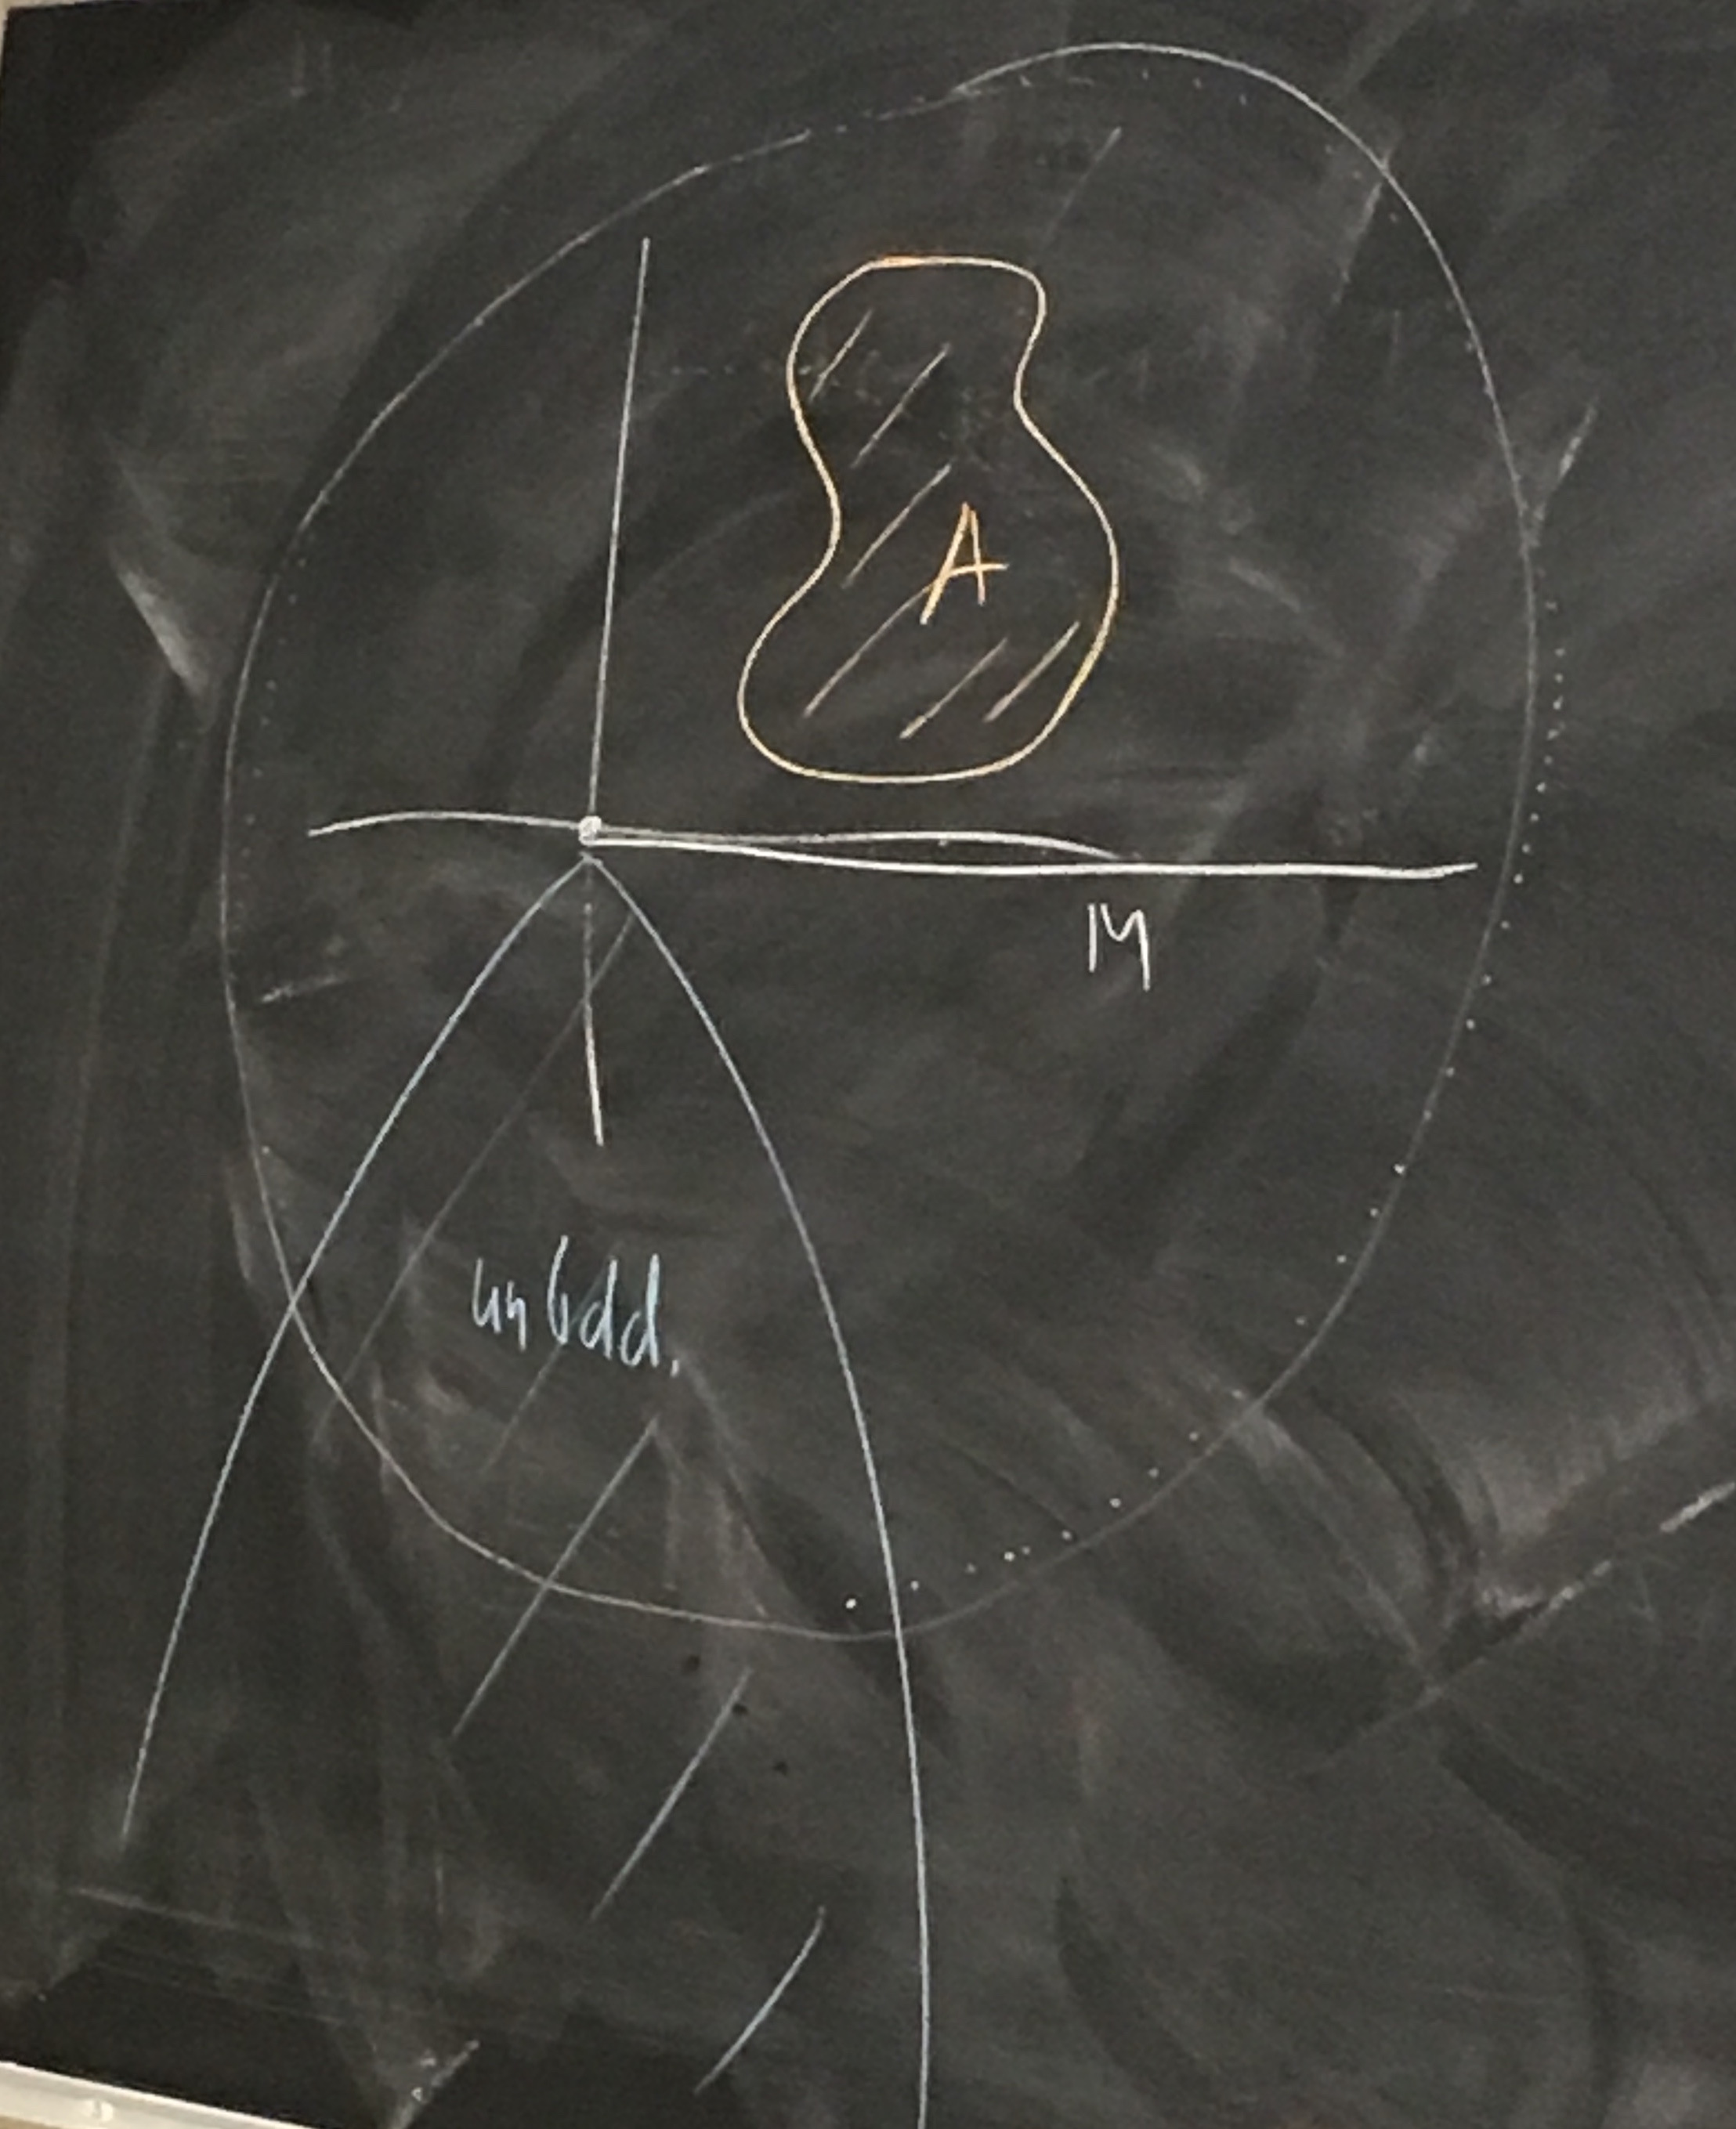 A
M
unbdd.